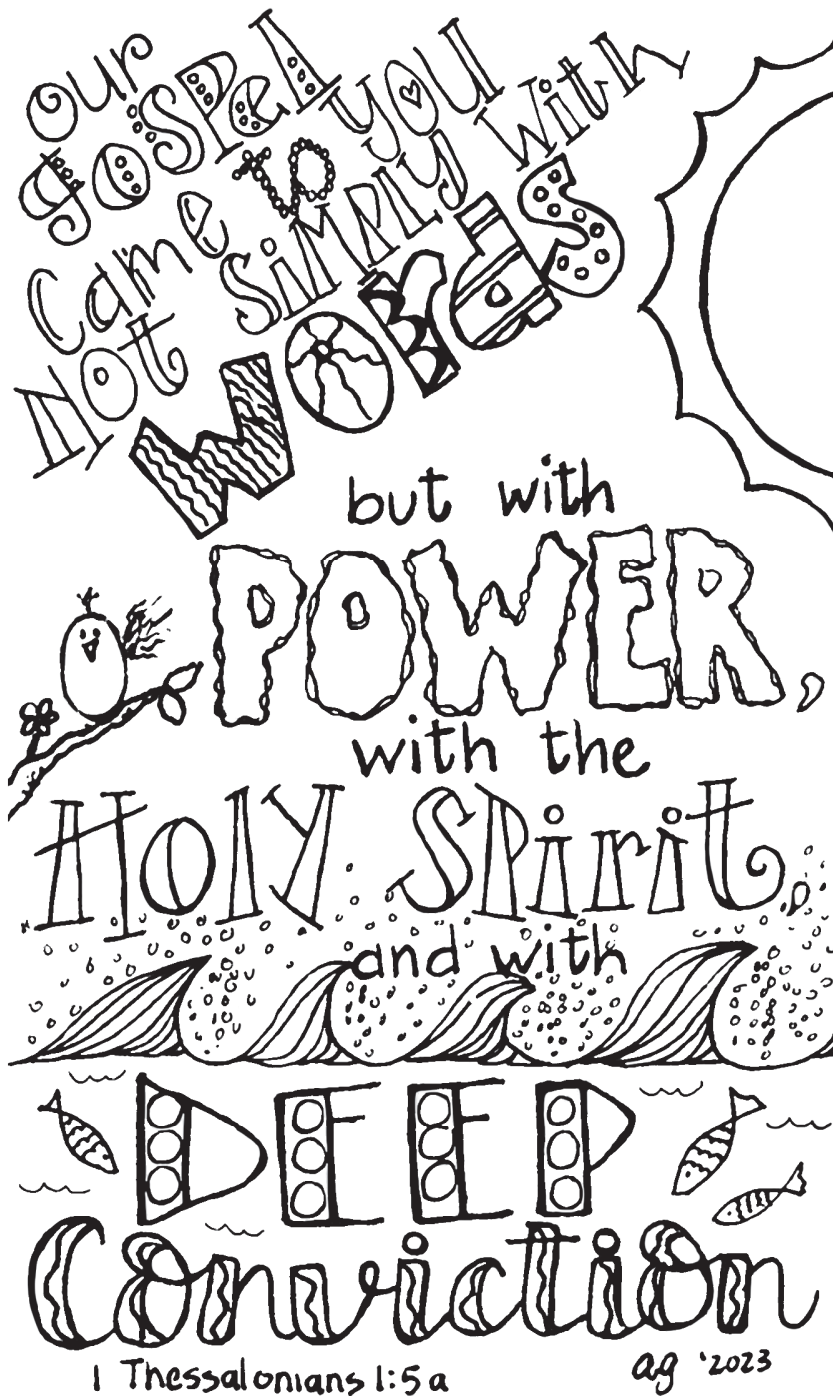 our
gospel
came to you
Not simply with
words
but with
POWER,
with the
Holy Spirit,
and with
DEEP
Conviction
1 Thessalonians 1:5a
ag '2023